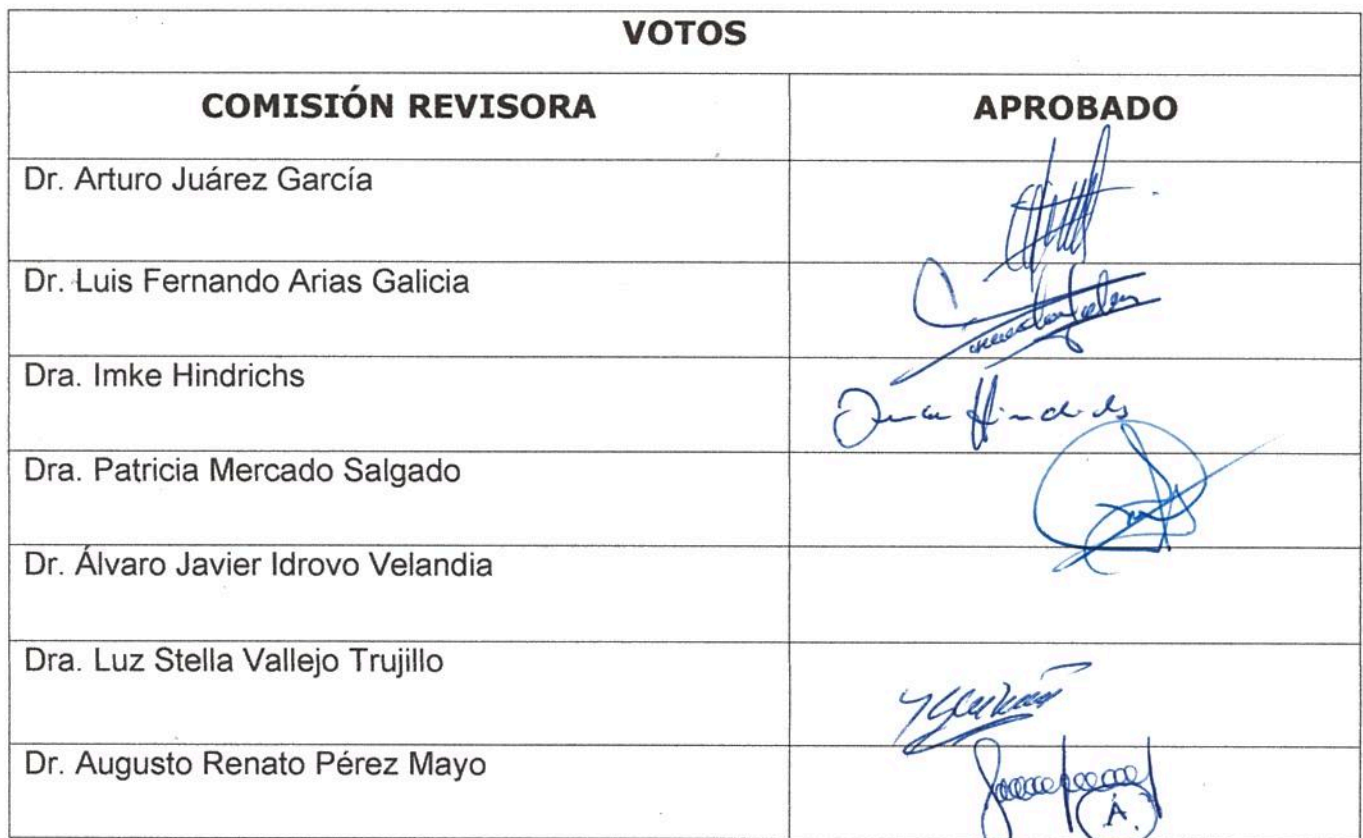 VOTOS
COMISIÓN REVISORA APROBADO
Dr. Arturo Juárez García
Dr. Luis Fernando Arias Galicia
Dra. Imke Hindrichs
Dra. Patricia Mercado Salgado
Dr. Álvaro Javier Idrovo Velandia
Dra. Luz Stella Vallejo Trujillo
Dr. Augusto Renato Pérez Mayo
Á.